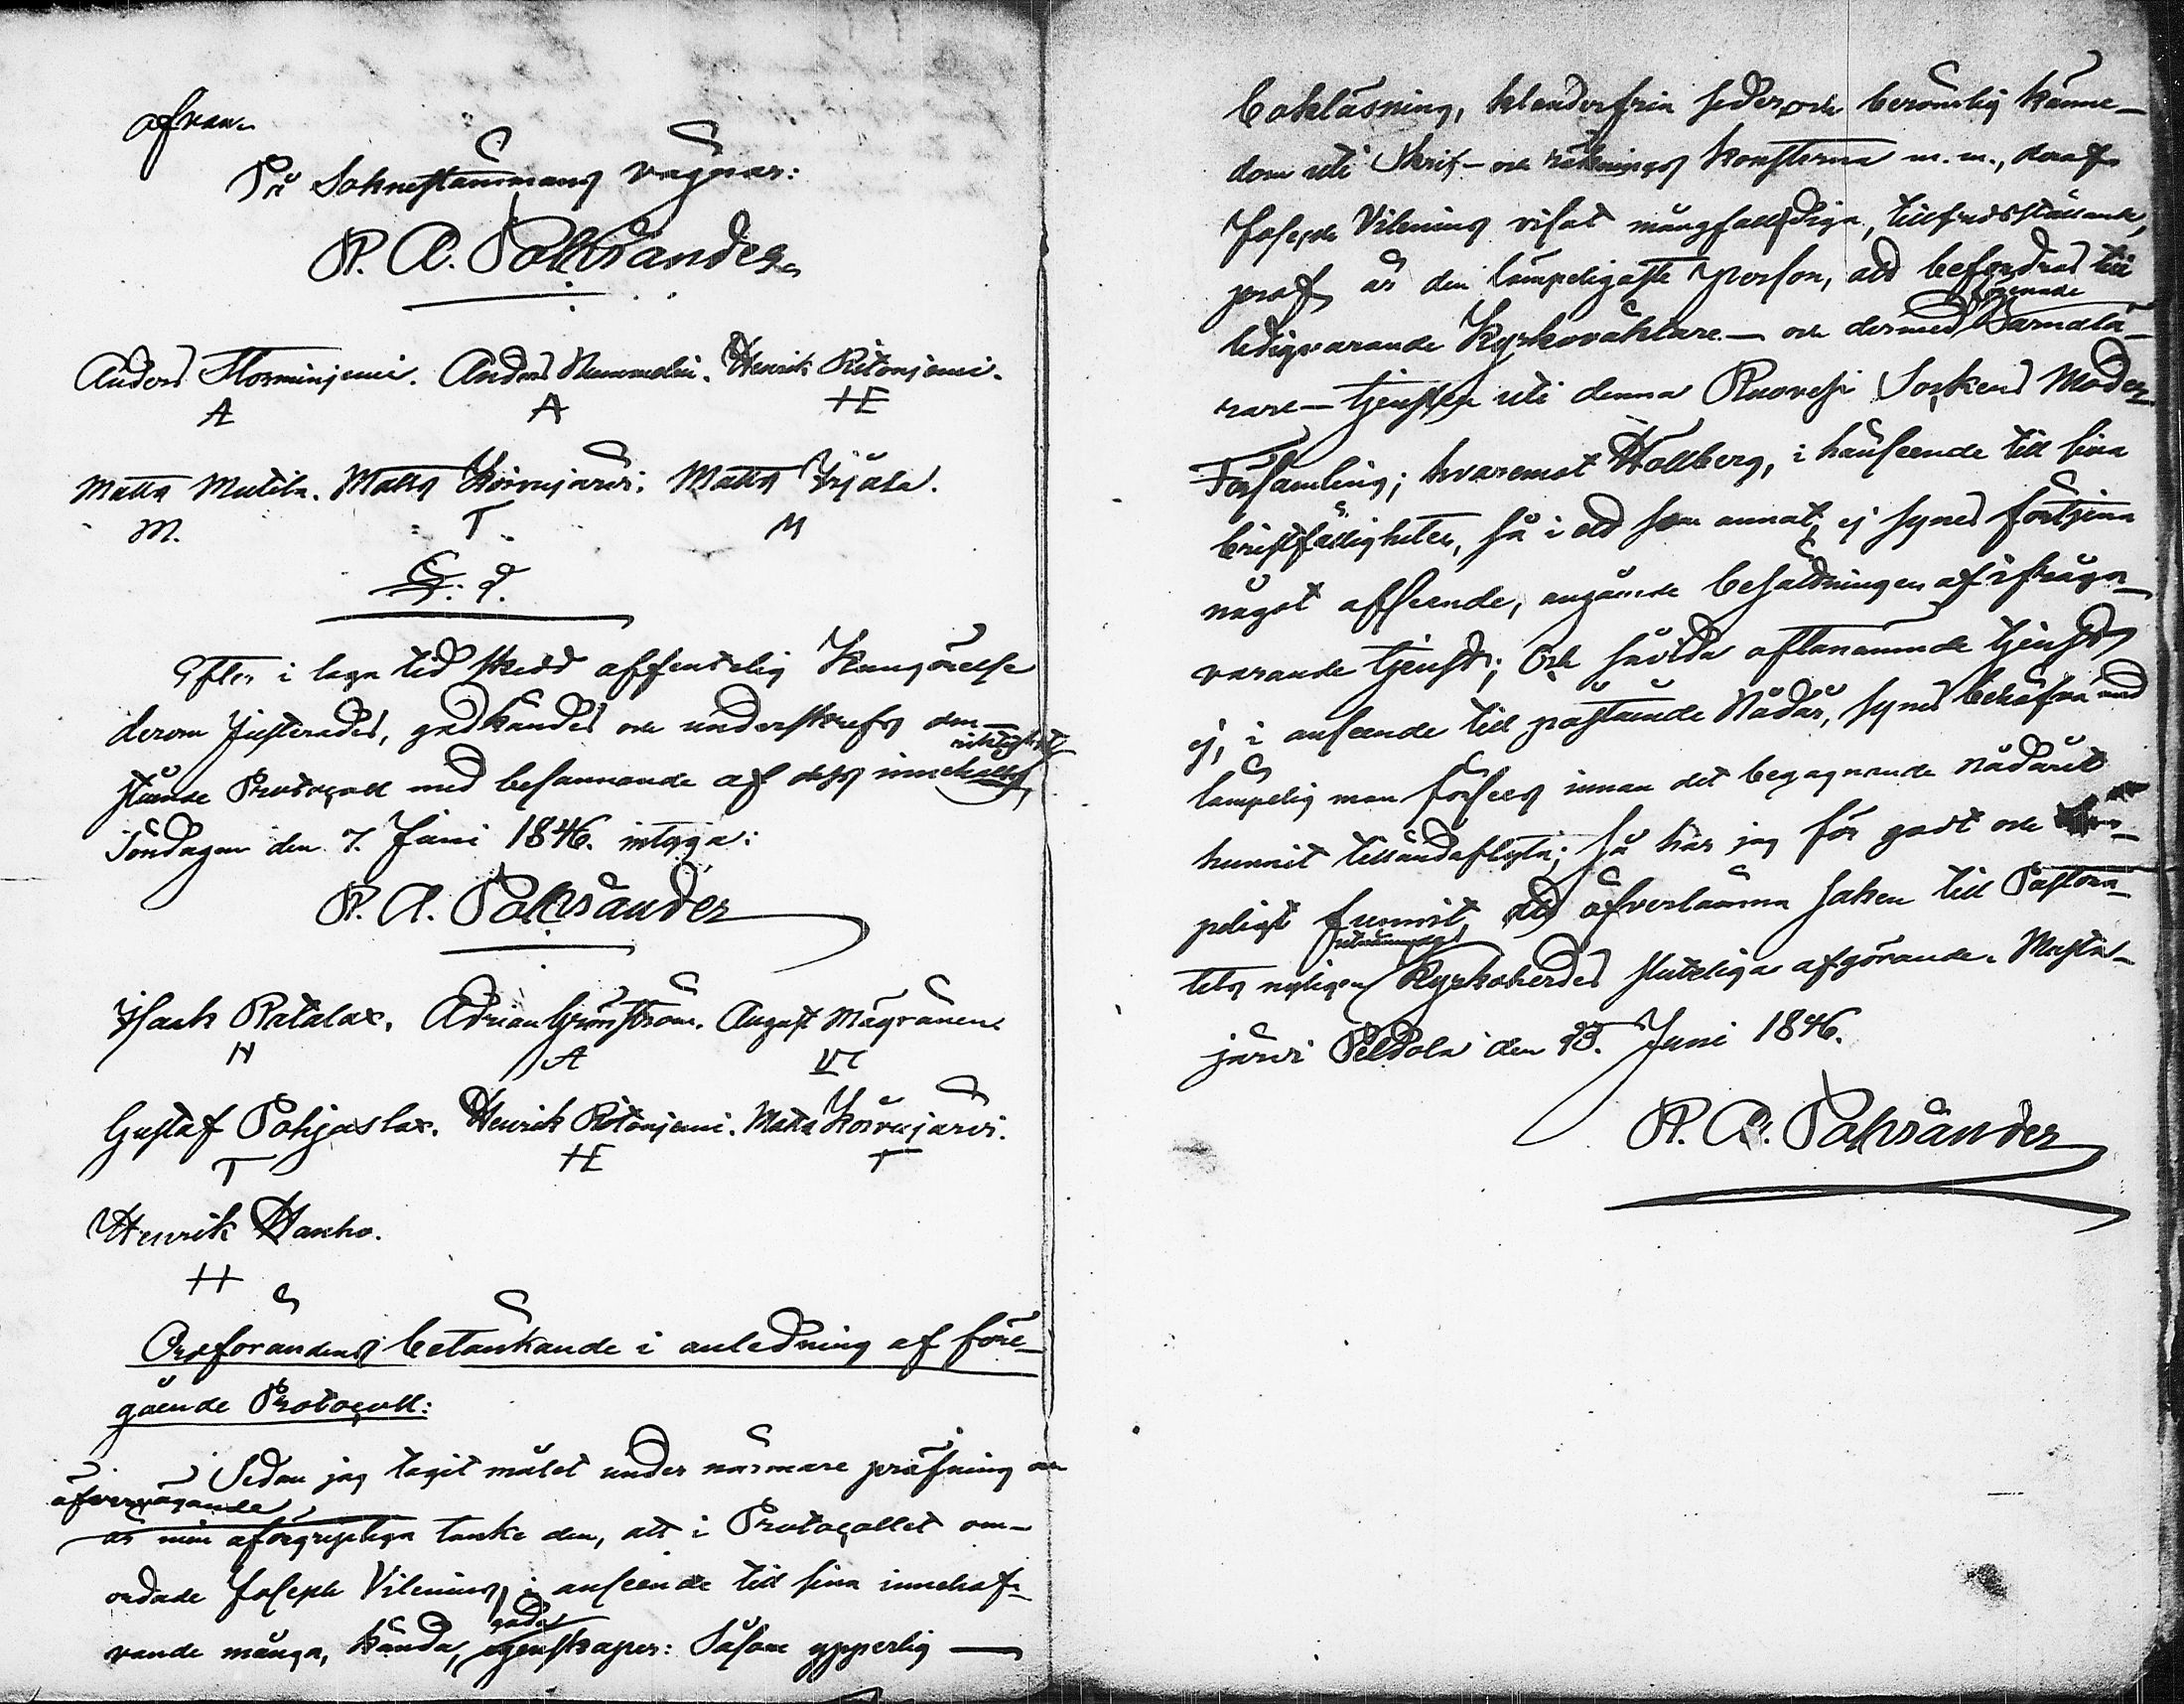 ofvan.
På Soknestämmans vägnar:
R. A. Polviander.
Anders Storminjemi. Anders Nummelin. Henrik Ritoniemi.
A A HE
Matts Mutila. Matts Koivujärvi. Matts Yrjälä.
M. T M
S. D.
Efter i laga tid skedd offentelig Kungörelse
derom Justerades, godkändes och underskrefs den-
stående Protocoll med besannande af dess innehålls riktighet,
Söndagen den 7. Juni 1846. intyga:
R. A. Polviander
Isaak Ratalax. Adrian Grönström. August Mäyränen.
N A
Gustaf Pohjaslax. Henrik Ritoniemi. Matts Koivujärvi.
T HE T
Henrik Hanho.
H
Ordförandens betänkande i anledning af före-
gående Protocoll:
Sedan jag tagit målet under närmare pröfning och
öfvervägande
är min oförgripliga tanke den, att i Protocollet om-
ordade Joseph Vilenius, i anseende till sina innehaf-
vande många, kända, goda egenskaper: Såsom ypperlig
bokläsning, klanderfria seder och berömlig känne-
dom uti Skrif- och räknings konsterna m. m., deraf
Joseph Vilenius visat mångfalldiga, tillfredsställande,
prof, är den lämpeligaste person, att befordras till
ledigvarande Kyrkovaktare- och dermed förenade Barnalä-
rare-tjensten uti denna Ruovesi Sockens Moder
Församling; hvaremot Hallberg, i hänseende till sina
bristfälligheter, så i ett som annat, ej synes förtjena
något afseende, angående besättningen af ifråga-
varande tjenst; Och såvida oftanämnde tjenst
ej, i anseende till påstående Nådår, synes behöfva med
lämpelig man förses innan det begagnande nådåret
hunnit tilländaflyta; så har jag för godt och
peligt funnit, att öfverlämna saken till Pastora-
tets nyligen utnämnda Kyrkoherdes slutliga afgörande. Mustа-
järvi Peldola den 23. Juni 1846.
R. A. Polviander